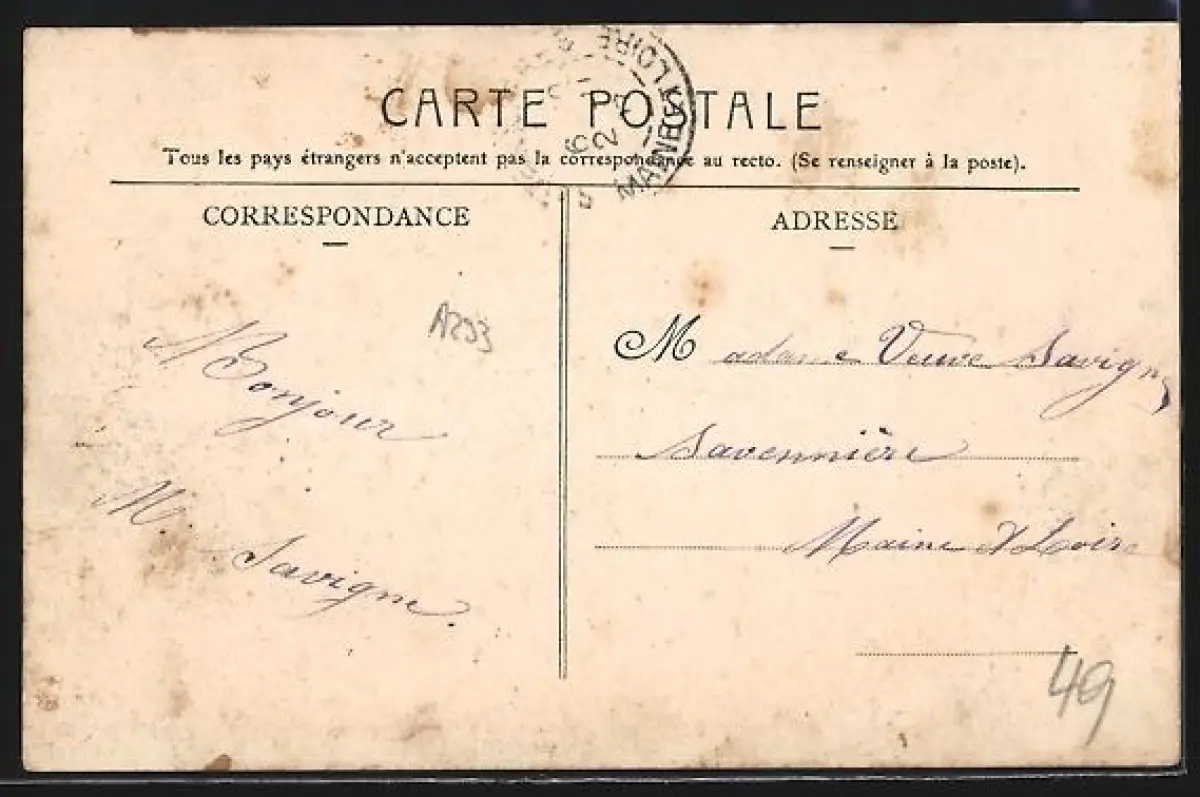 CARTE POSTALE
Tous les pays étrangers n'acceptent pas la correspondance au recto. (Se renseigner à la poste).
MAINE & LOIRE
CORRESPONDANCE
ADRESSE
A293
Bonjour
M. Savigne.
Madame Veuve Savigny
Savennière
Maine & Loire
49